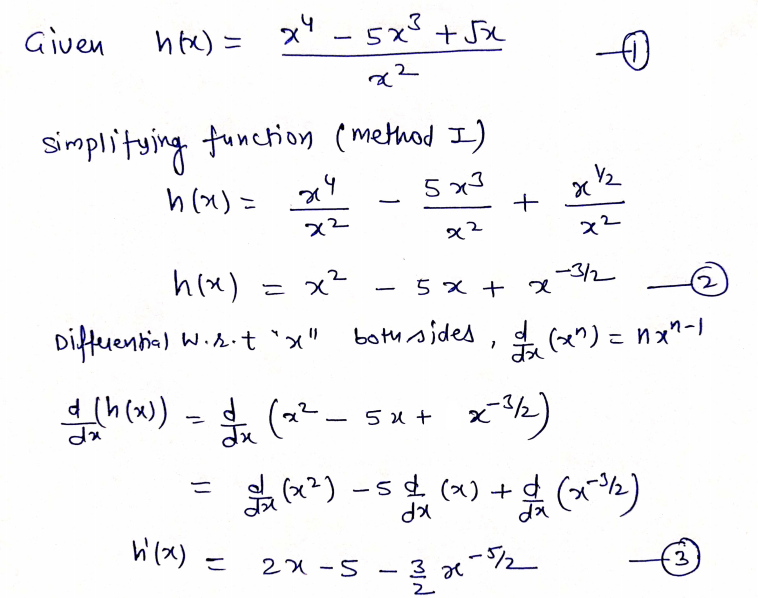 Given h(x) = (x^4 - 5x^3 + √x)/x^2 —①
simplifying function (method I)
h(x) = x^4/x^2 - 5x^3/x^2 + x^(1/2)/x^2
h(x) = x^2 - 5x + x^(-3/2) —②
Differential w.r.t "x" both sides, d/dx (x^n) = nx^(n-1)
d/dx (h(x)) = d/dx (x^2 - 5x + x^(-3/2))
= d/dx (x^2) - 5 d/dx (x) + d/dx (x^(-3/2))
h'(x) = 2x - 5 - 3/2 x^(-5/2) —③